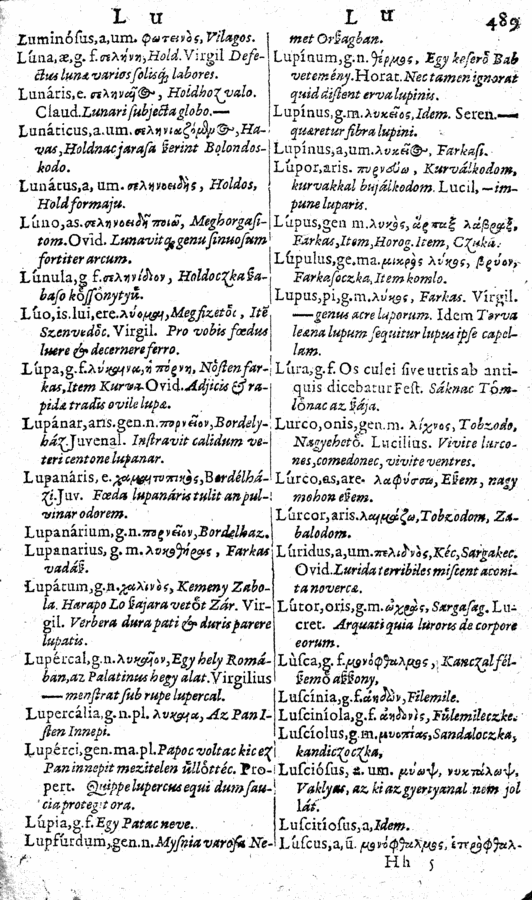 L u
L u 489
Luminósus, a, um. φωτεινὸς, Vilagos.
Lúna, æ, g. f. σελήνη, Hold. Virgil Defe-
ctus lunæ varios solisq́, labores.
Lunáris, e. Holdhoz valo.
Claud. Lunari subjecta globo.—
Lunáticus, a, um. Ha-
vas, Holdnac jarasa ßerint Bolondos-
kodo.
Lunátus, a, um. σεληνοειδὴς, Holdos,
Hold formaju.
Lúno, as. σεληνοειδῆ ποιῶ, Meghorgasi-
tom. Ovid. Lunavitq́ genu sinuosum
fortiter arcum.
Lúnula, g f. σεληνίδιον, Holdoczka ßa-
baso
Luo, is. lui, ere. λύομαι, Megfizetȍc, Itē
Szenvedȍc. Virgil. Pro vobis fœdus
luere & decernere ferro.
Lúpa, g. f. λύκαινα, ἡ πόρνη, Nȍsten far-
kas, Item Kurva. Ovid. Adjicis & ra-
pidæ tradis ovile lupæ.
Lupánar, ans. gen. n. πορνεῖον, Bordely-
ház. Juvenal. Instravit calidum ve-
teri centone lupanar.
Lupanáris, e. χαμαιτυπικὸς, Bordélhá-
zi. Juv. Fœda lupanáris tulit ad pul-
vinar odorem.
Lupanárium, g. n. πορνεῖον, Bordelhaz.
Lupanarius, g. m. λυκοθήρας, Farkas
vadáß.
Lupátum, g. n. χαλινὸς, Kemeny Zabo-
la. Harapo Lo ßajara vetȍt Zár. Vir-
gil. Verbera dura pati & duris parere
lupatis.
Lupércal, g. n. λυκαῖον, Egy hely Romá-
ban, az Palatinus hegy alat. Virgilius
—menstrat sub rupe lupercal.
Lupercália, g. n. pl. λυκαια, Az Pan I-
sten Innepi.
Lupérci, gen. ma. pl. Papoc voltac kic ez
Pan innepit mezitelen ȕllȍttéc. Pro-
pert. Quippe lupercus equi dum sau-
cia proteg it ora.
Lúpia, g. f. Egy Patac neve.
Lupfúrdum, gen. n. Mysnia varosa Ne-
met Orßagban.
Lupínum, g. n. θέρμος, Egy keserȍ Bab
vetemény. Horat. Nec tamen ignorat
quid distent æra lupinis.
Lupínus, g. m. λυκεῖος, Idem. Seren.—
quæretur fibra lupini.
Lupínus, a, um. Farkasi.
Lúpor, aris. πορνεύω, Kurválkodom,
kurvakkal bujálkodom. Lucil,—im-
pune luparis.
Lúpus, gen m. λυκὸς, ἅρπαξ λάβραξ,
Farkas, Item, Horog. Item, Czuka.
Lúpulus, ge. ma. μικρὸς λύκος, βρύον,
Farkasoczka, Item komlo.
Lupus, pi, g. m. λυκος, Farkas. Virgil.
—genus acre luporum. Idem Torva
leæna lupum sequitur lupus ipse capel-
lam.
Lúra, g. f. Os culei sive utris ab anti-
quis dicebatur Fest. Sáknac Tȍm-
lȍnac az ßája.
Lurco, onis, gen. m. λίχνος, Tobzodo,
Nagyehetȍ. Lucilius. Vivite lurco-
nes, comedonec, vivite ventres.
Lúrco, as, are. λαφύσσω, Eßem, nagy
mohon eßem.
Lúrcor, aris. λαιμάζω, Tobzodom, Za-
balodom.
Lúridus, a, um. πελιδνὸς, Kéc, Sargakec.
Ovid. Lurida terribiles miscent aconi-
ta novercæ.
Lútor, oris, g. m. Sargasag. Lu-
cret. Arquati quia luroris de corpore
eorum.
Lùsca, g. f. μονόφθαλμος, Kanczal fél-
ßemȍ aßßony,
Luscínia, g. f. ἀηδὼν, Filemile.
Lusciníola, g. f. ἀηδονὶς, Fȕlemileczke.
Lusciolus, g. m. μυωπίας, Sandaloczka,
kandiczoczka,
Lusciósus, a. um. μύωψ, νυκτάλωψ,
Vaklyas, az ki az gyertyanal nem jol
lát.
Luscitiosus, a, Idem.
Luscus, a, ū. μονόφθαλμος, ἑτερόφθαλ-
Hh 5